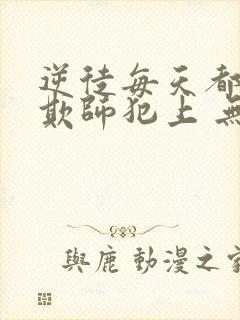 逆徒每天都
欺師犯上 無
與鹿 動漫之家